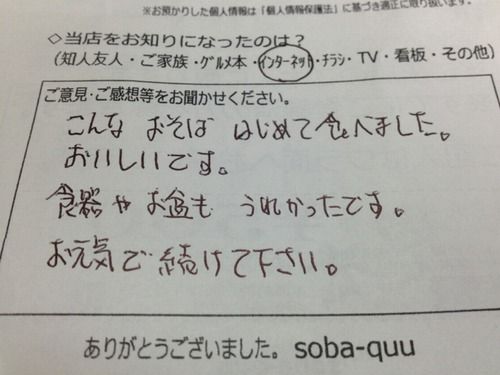 ※お預かりした個人情報は「個人情報保護法」に基づき適正に取り扱います。
◇当店をお知りになったのは？
(知人友人・ご家族・グルメ本・インターネット・チラシ・TV・看板・その他)
ご意見・ご感想等をお聞かせください。
こんな おそば はじめて食べました。
おいしいです。
食器や お盆も うれかったです。
お元気で 続けて下さい。
ありがとうございました。soba-quu